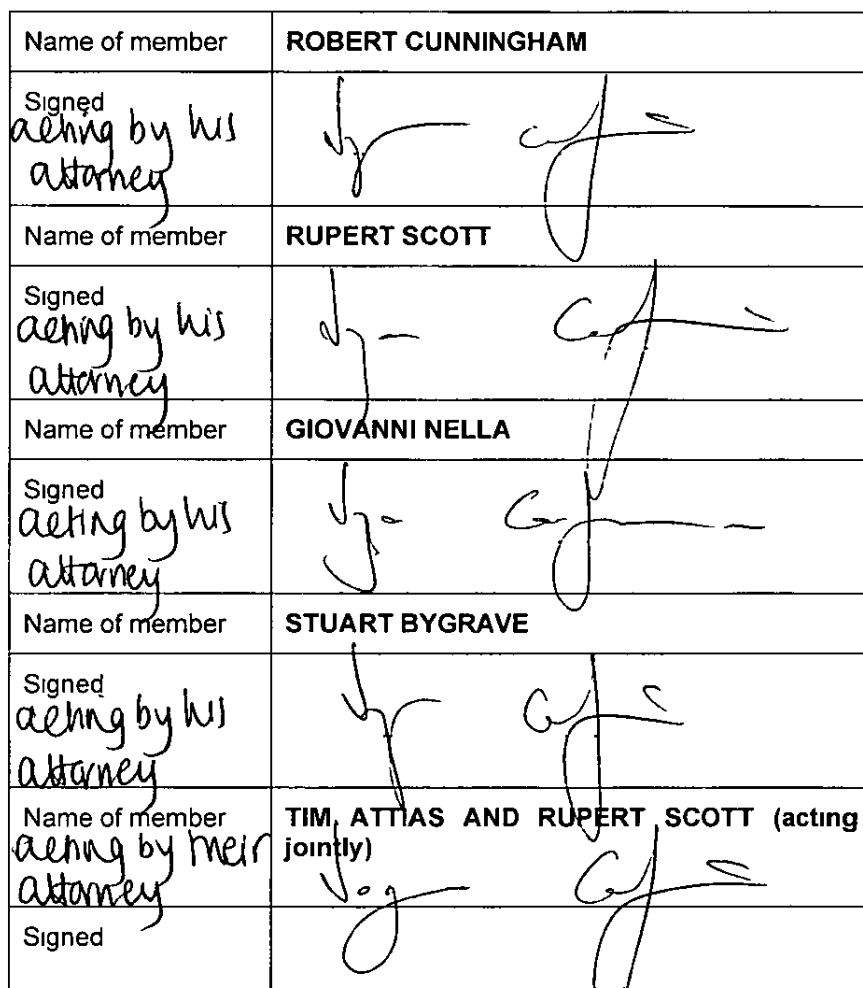 Name of member ROBERT CUNNINGHAM
Signed
acting by his
attorney
Name of member RUPERT SCOTT
Signed
acting by his
attorney
Name of member GIOVANNI NELLA
Signed
acting by his
attorney
Name of member STUART BYGRAVE
Signed
acting by his
attorney
Name of member TIM ATTIAS AND RUPERT SCOTT (acting
acting by their jointly)
attorney
Signed